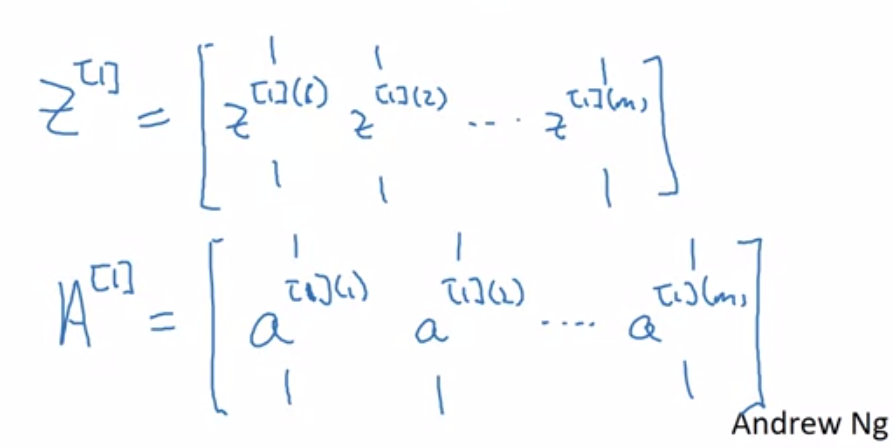 Z^[1] = [ z^[1](1) z^[1](2) ... z^[1](m) ]
A^[1] = [ a^[1](1) a^[1](2) .... a^[1](m) ]
Andrew Ng